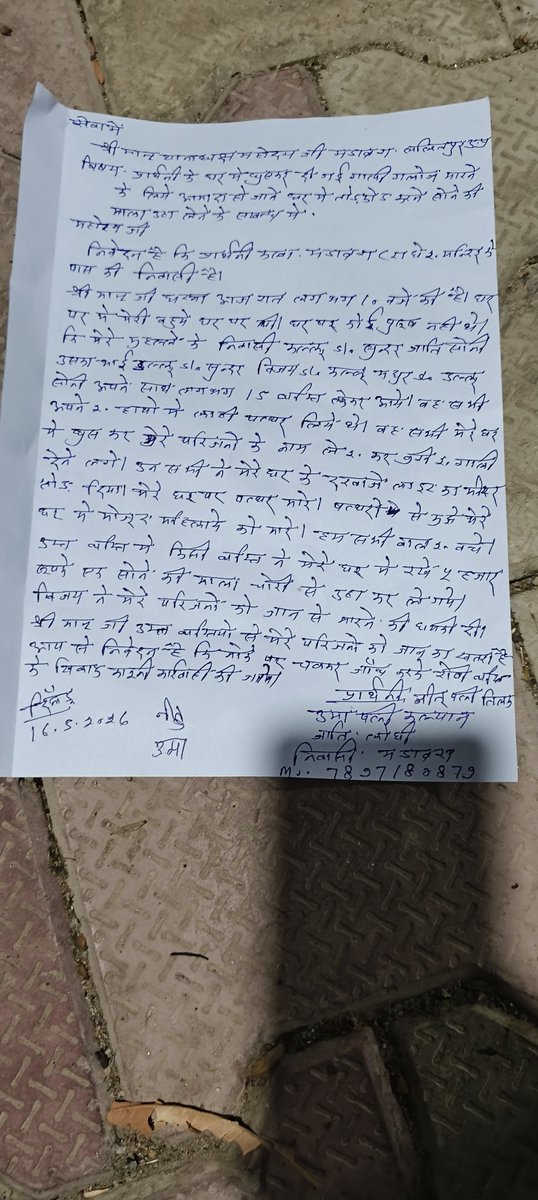 सेवा में
श्री मान थानाध्यक्ष महोदय जी मडावरा ललितपुर उ०प्र०
विषय - प्रार्थनी के घर में घुसकर दी गई गाली गलौज मारने
के लिये आमादा हो जाने घर में तोडफोड करने सोने की
माला उठा लेने के सम्बन्ध में .
महोदय जी
निवेदन है कि प्रार्थनी कस्बा मडावरा मन्दिर के
पास की निवासी है।
श्री मान जी घटना आज रात लगभग 10 बजे की है। घर
पर में मेरी बहुये घर पर थी। घर पर कोई पुरुष नही थे।
कि मेरे मुहल्ले के निवासी कल्लू S/o सुन्दर जाति सोनी
उसका भाई डल्लू S/o सुन्दर विजय S/o कल्लू मथुर S/o डल्लू
सोनी अपने साथ लगभग 15 व्यक्ति लेकर आये। वह सभी
अपने २ हाथो में लाठी पत्थर लिये थे। वह सभी मेरे घर
में घुस कर मेरे परिजनो के नाम ले २ कर बुरी २ गाली
देने लगे। उन सभी ने मेरे घर के दरवाजे लाइट का मीटर
तोड दिया। मेरे घर पर पत्थर मारे। पत्थरो से मुझे मेरे
घर में मौजूद महिलाये को मारे। हम सभी बाल २ बचे।
उक्त व्यक्ति में किसी व्यक्ति ने मेरे घर में रखे ५ हजार
रूपये एव सोने की माला चोरी से उठा कर ले गये।
विजय ने मेरे परिजनो को जान से मारने की धमकी दी।
श्री मान जी उक्त व्यक्तियो से मेरे परिजनो को जान का खतरा है
आप से निवेदन है कि मौके पर चलकर जाँच करके दोषी व्यक्ति
के खिलाफ कानूनी कार्यवाही की जाये।
दिनांक प्रार्थनी - नीतू पत्नी तिलक
16.5.2026 नीतु उमा पत्नी कल्यान
उमा जाति - लोधी
निवासी - मडावरा
Mo. 7897180879